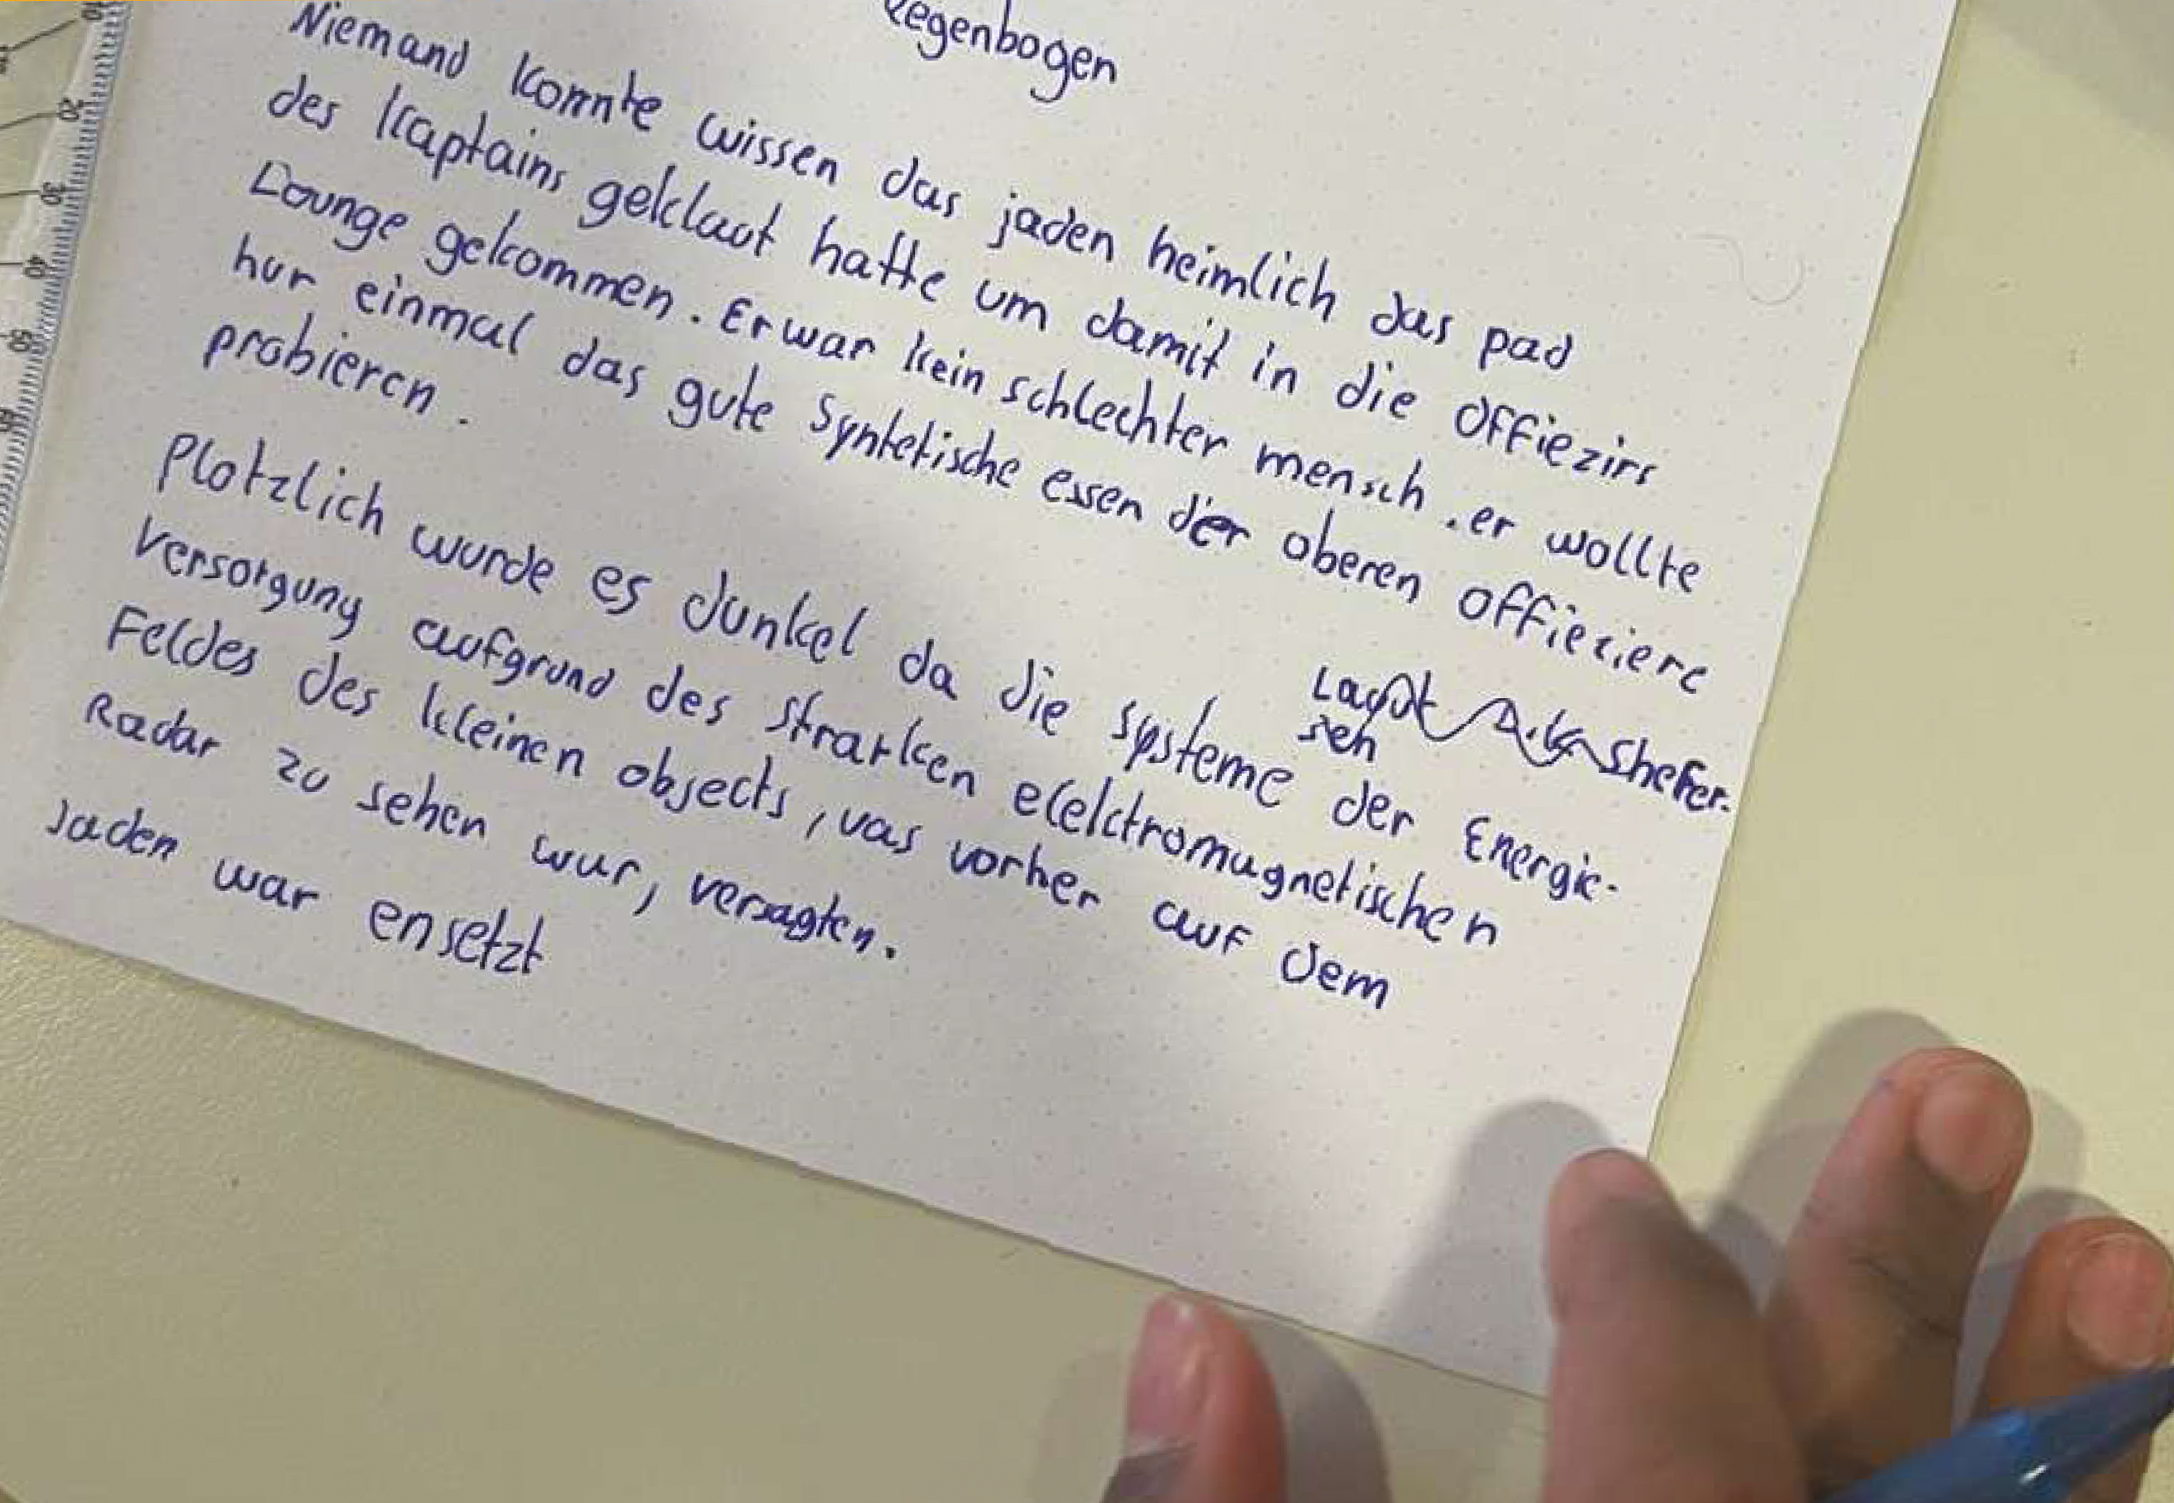 Regenbogen
Niemand konnte wissen das jaden heimlich das pad
des kaptains geklaut hatte um damit in die offiezirs
Lounge gekommen. Er war kein schlechter mensch. er wollte
nur einmal das gute Syntetische essen der oberen offieziere
probieren.
Plotzlich wurde es dunkel da die systeme der Energie-
versorgung aufgrund des starken elektromagnetischen
Feldes des kleinen objects, was vorher auf dem
Radar zu sehen war, versagten.
Jaden war ensetzt
20
30
40
50